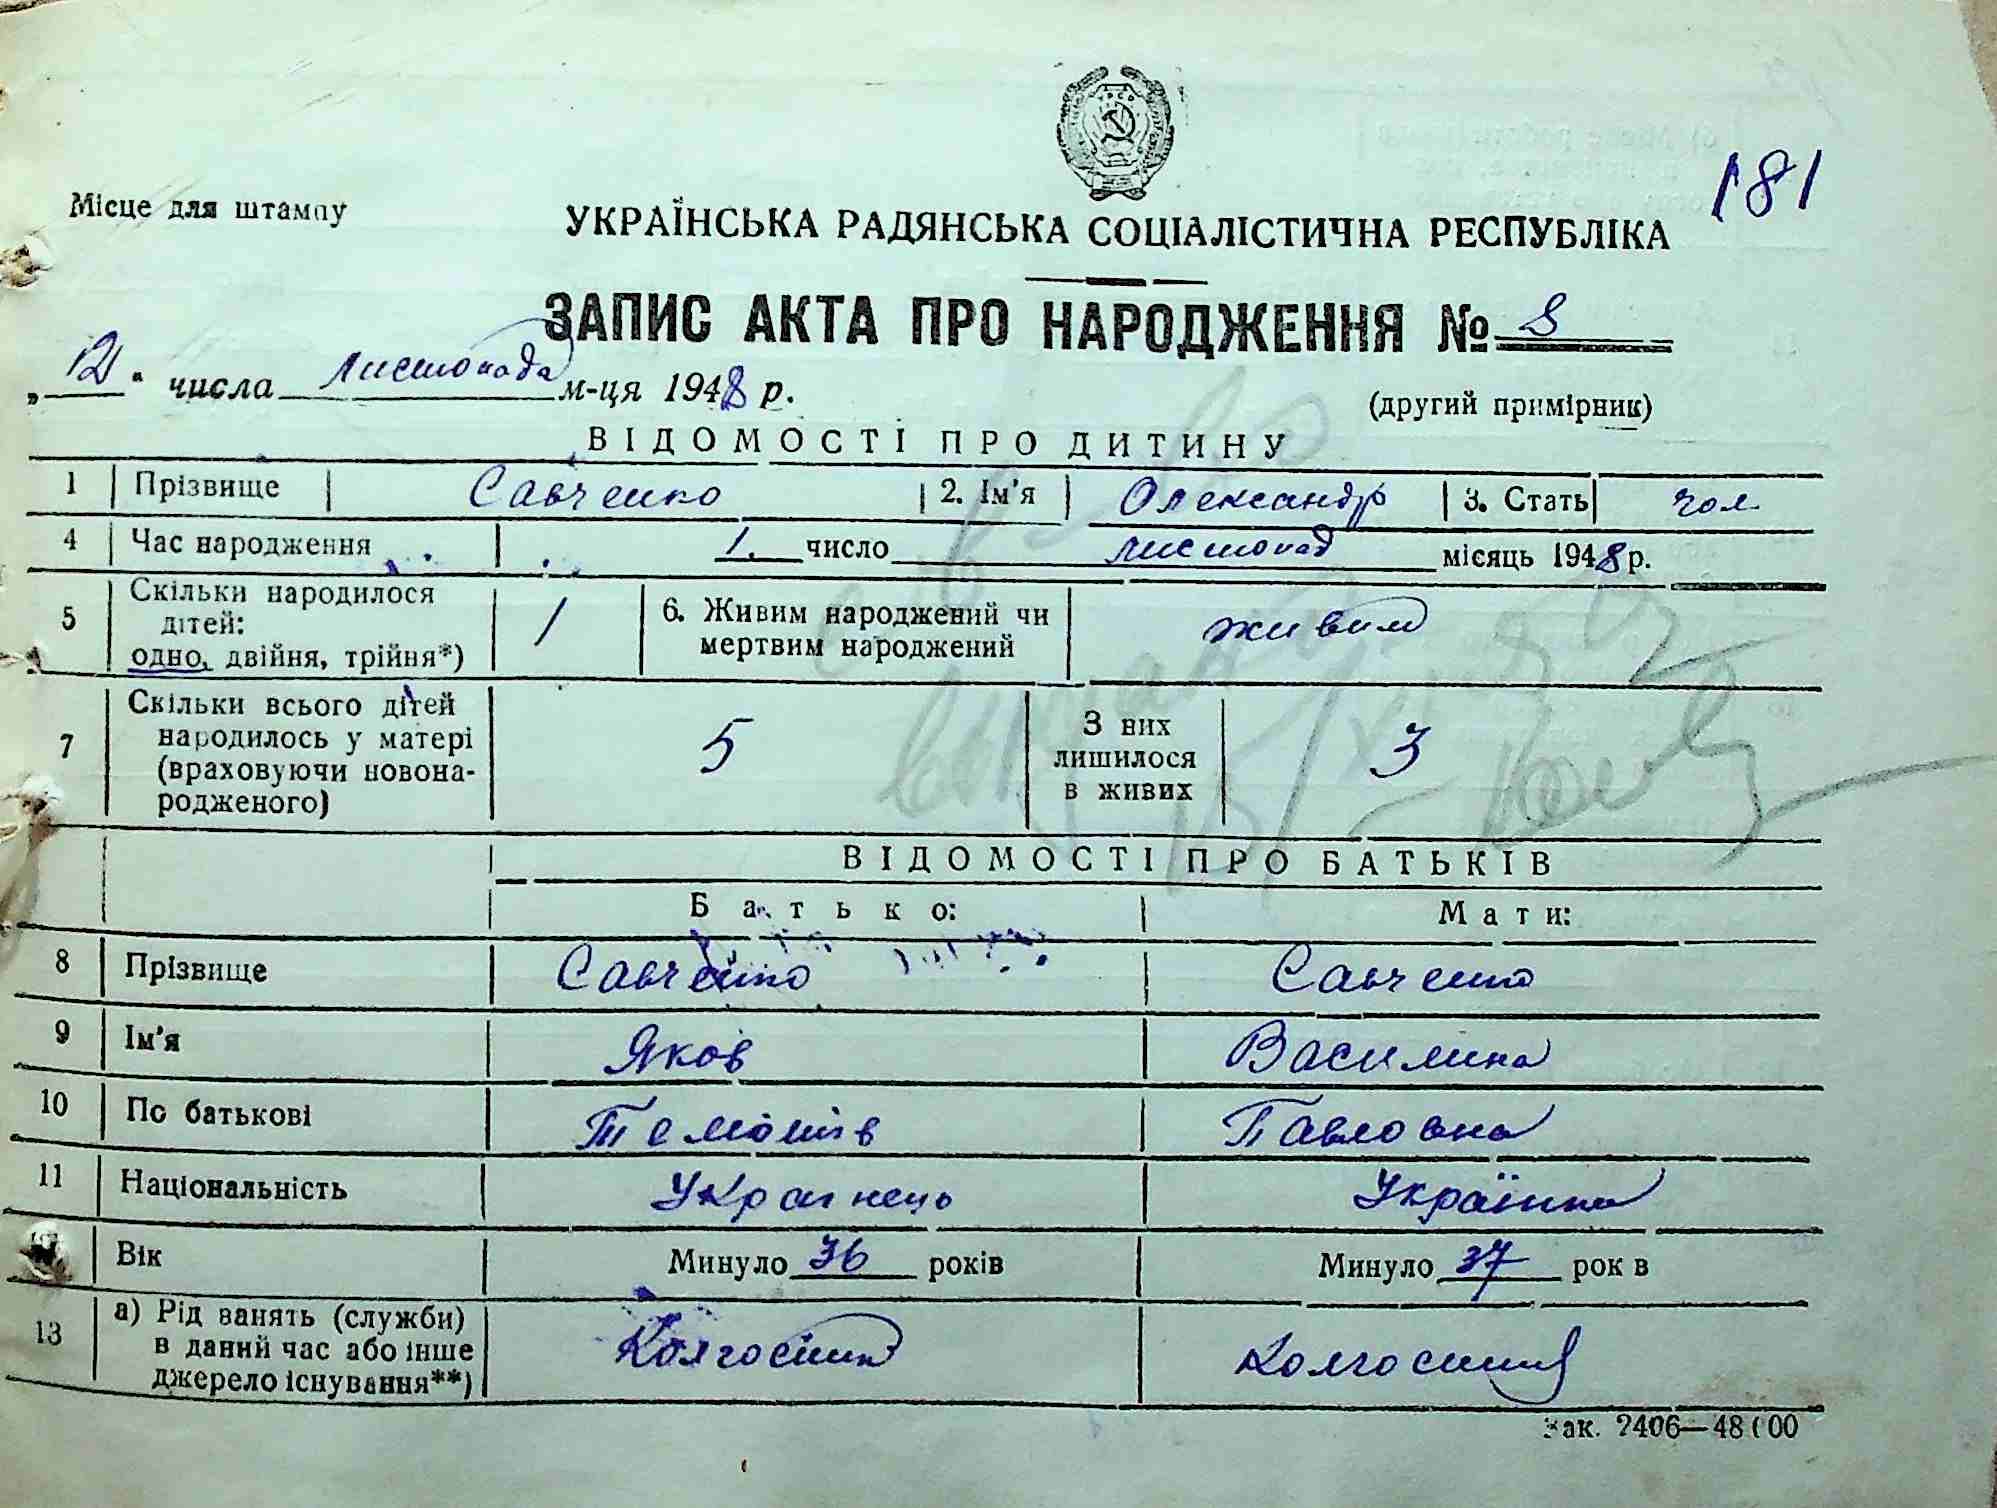 181
Місце для штампу
УКРАЇНСЬКА РАДЯНСЬКА СОЦІАЛІСТИЧНА РЕСПУБЛІКА
ЗАПИС АКТА ПРО НАРОДЖЕННЯ № 8
„12" числа листопада м-ця 1948 р.
(другий примірник)
ВІДОМОСТІ ПРО ДИТИНУ
1 Прізвище Савченко 2. Ім'я Олександр 3. Стать чол.
4 Час народження 1. число листопад місяць 1948 р.
5 Скільки народилося дітей: одно, двійня, трійня*) 1 6. Живим народжений чи мертвим народжений живим
7 Скільки всього дітей народилось у матері (враховуючи новонародженого) 5 З них лишилося в живих 3
ВІДОМОСТІ ПРО БАТЬКІВ
Батько: Мати:
8 Прізвище Савченко Савченко
9 Ім'я Яков Василина
10 По батькові Павловна
11 Національність Українець Українка
Вік Минуло 36 років Минуло 37 рок в
13 а) Рід занять (служби) в даний час або інше джерело існування**) Колгоспник колгоспниця
Зак. 2406—48000